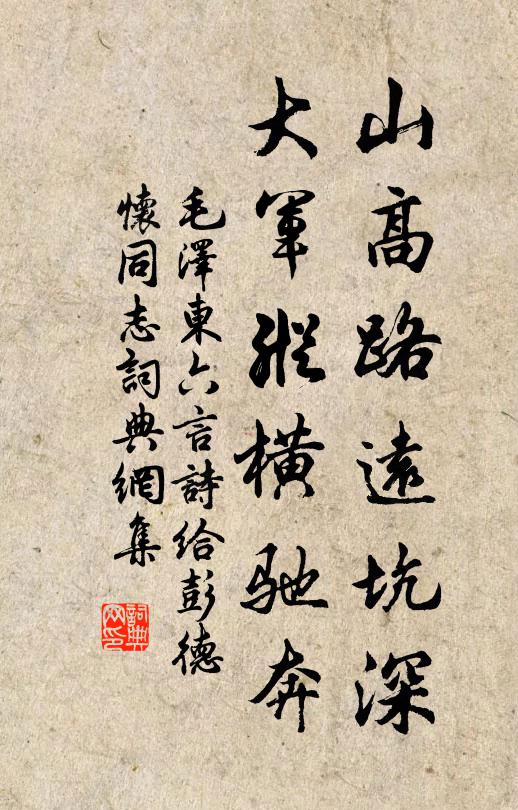 山高路遠坑深
大軍縱橫馳奔
毛澤東六言詩給彭德
懷同志詞典網集
詞典网印